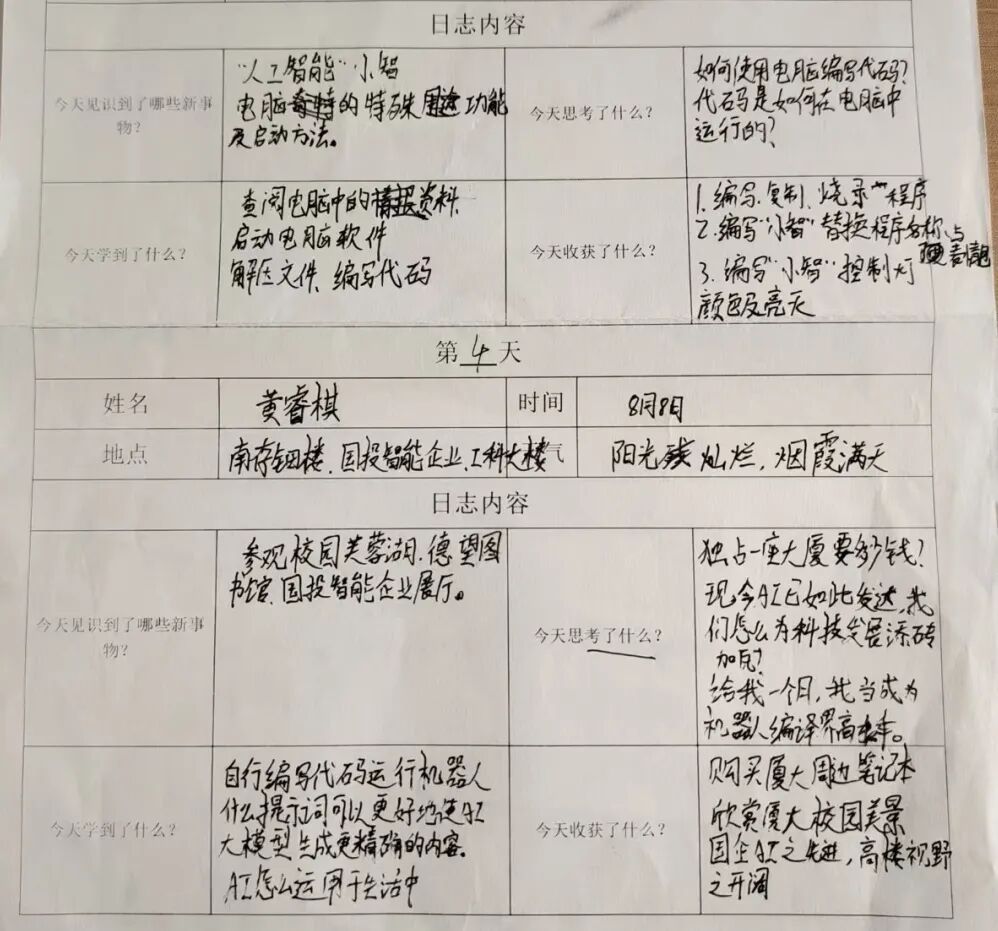 日志内容
今天见识到了哪些新事物?
"人工智能"小智
电脑的特殊功能
及启动方法。
今天思考了什么?
如何使用电脑编写代码?
代码是如何在电脑中
运行的?
今天学到了什么?
查阅电脑中的资料
启动电脑软件
解压文件、编写代码
今天收获了什么?
1.编写、复制、烧录"程序
2.编写"小智"替换程序名称、与
3.编写"小智"控制灯
颜色及亮灭
第4天
姓名
黄睿棋
时间
8月8日
地点
南存钿楼、国投智能企业、工科大楼
气
阳光灿烂,烟霞满天
日志内容
今天见识到了哪些新事物?
参观校园芙蓉湖、德旺图
书馆、国投智能企业展厅。
今天思考了什么?
独占一座大厦要多少钱?
现今AI已如此发达,我
们怎么为科技发展添砖
加瓦?
给我一个月,我当成为
机器人编译界高手。
今天学到了什么?
自行编写代码运行机器人
什么提示词可以更好地使AI
大模型生成更精确的内容。
AI怎么运用于生活中
今天收获了什么?
购买厦大周边笔记本
欣赏厦大校园美景
国企AI之先进,高楼视野
之开阔